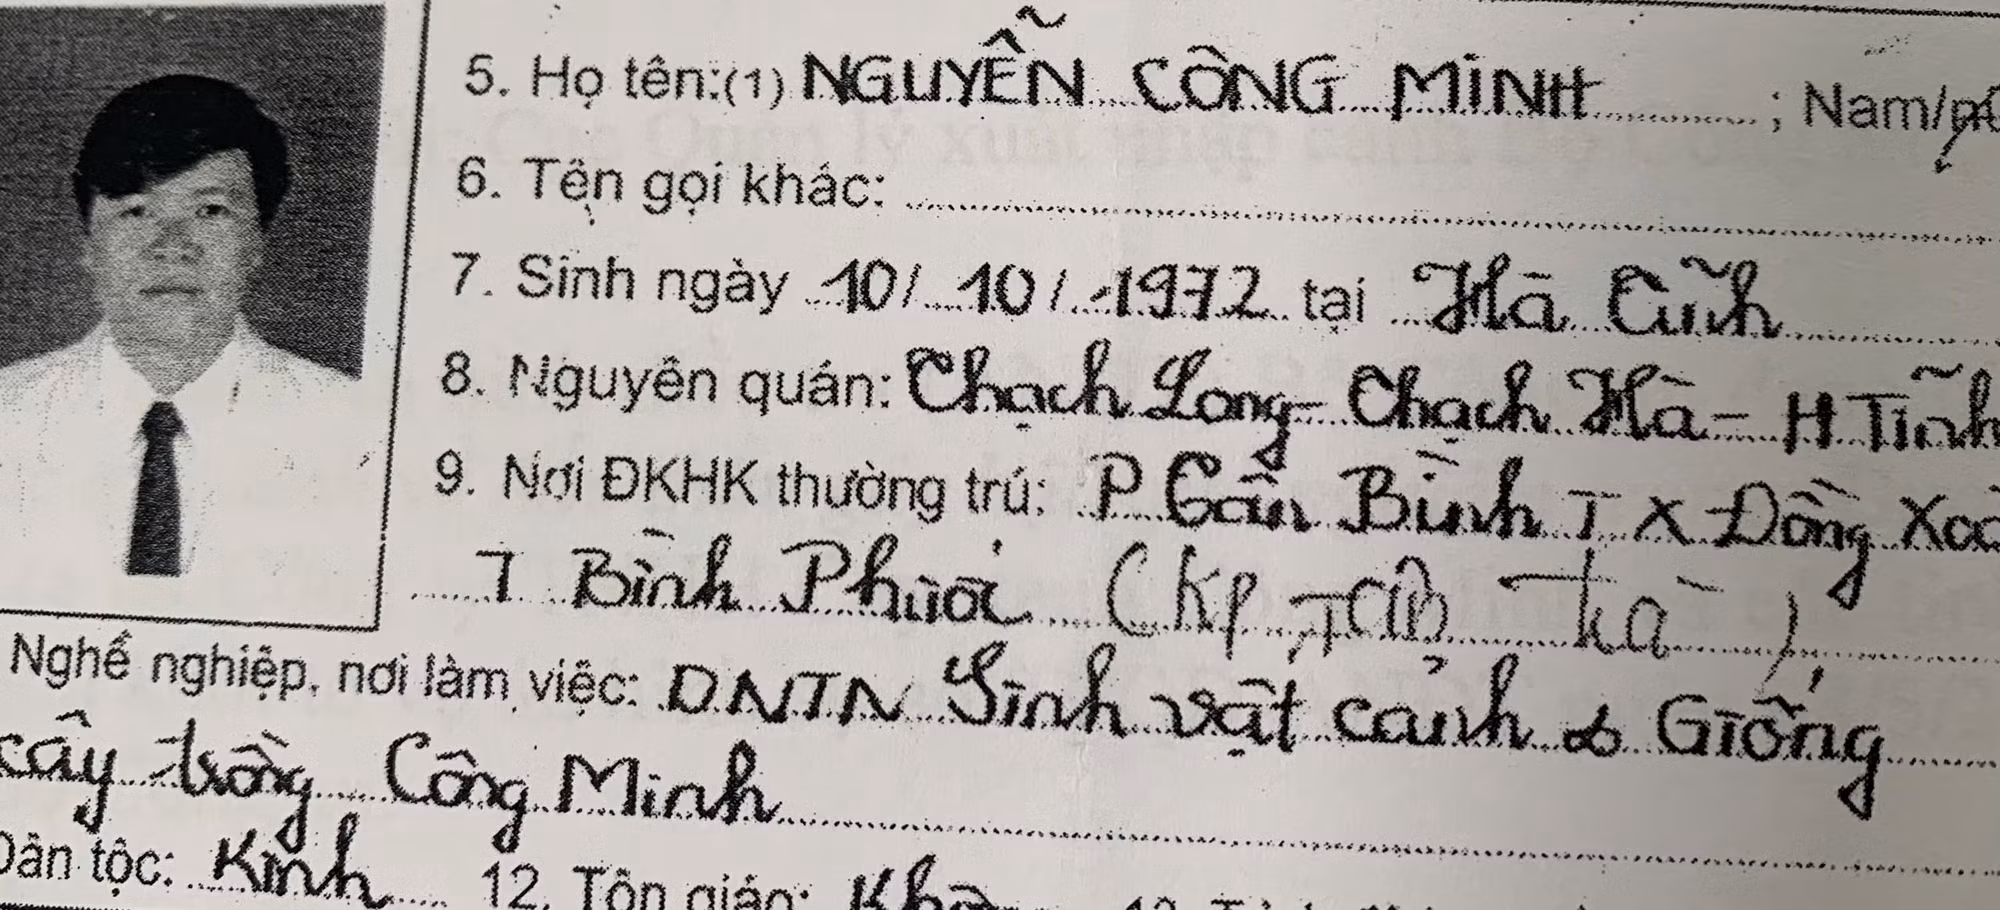 5. Họ tên:(1) NGUYỄN CÔNG MINH ; Nam/nữ
6. Tên gọi khác:
7. Sinh ngày 10/ 10 / 1972 tại Hà Tĩnh
8. Nguyên quán: Thạch Long - Thạch Hà - H Tĩnh
9. Nơi ĐKHK thường trú: P Tân Bình T X Đồng Xoà
T Bình Phước (KP Tân Trà )
Nghề nghiệp, nơi làm việc: DNTN Sinh vật cảnh & Giống
cây trồng Công Minh
Dân tộc: Kinh 12. Tôn giáo: Khô